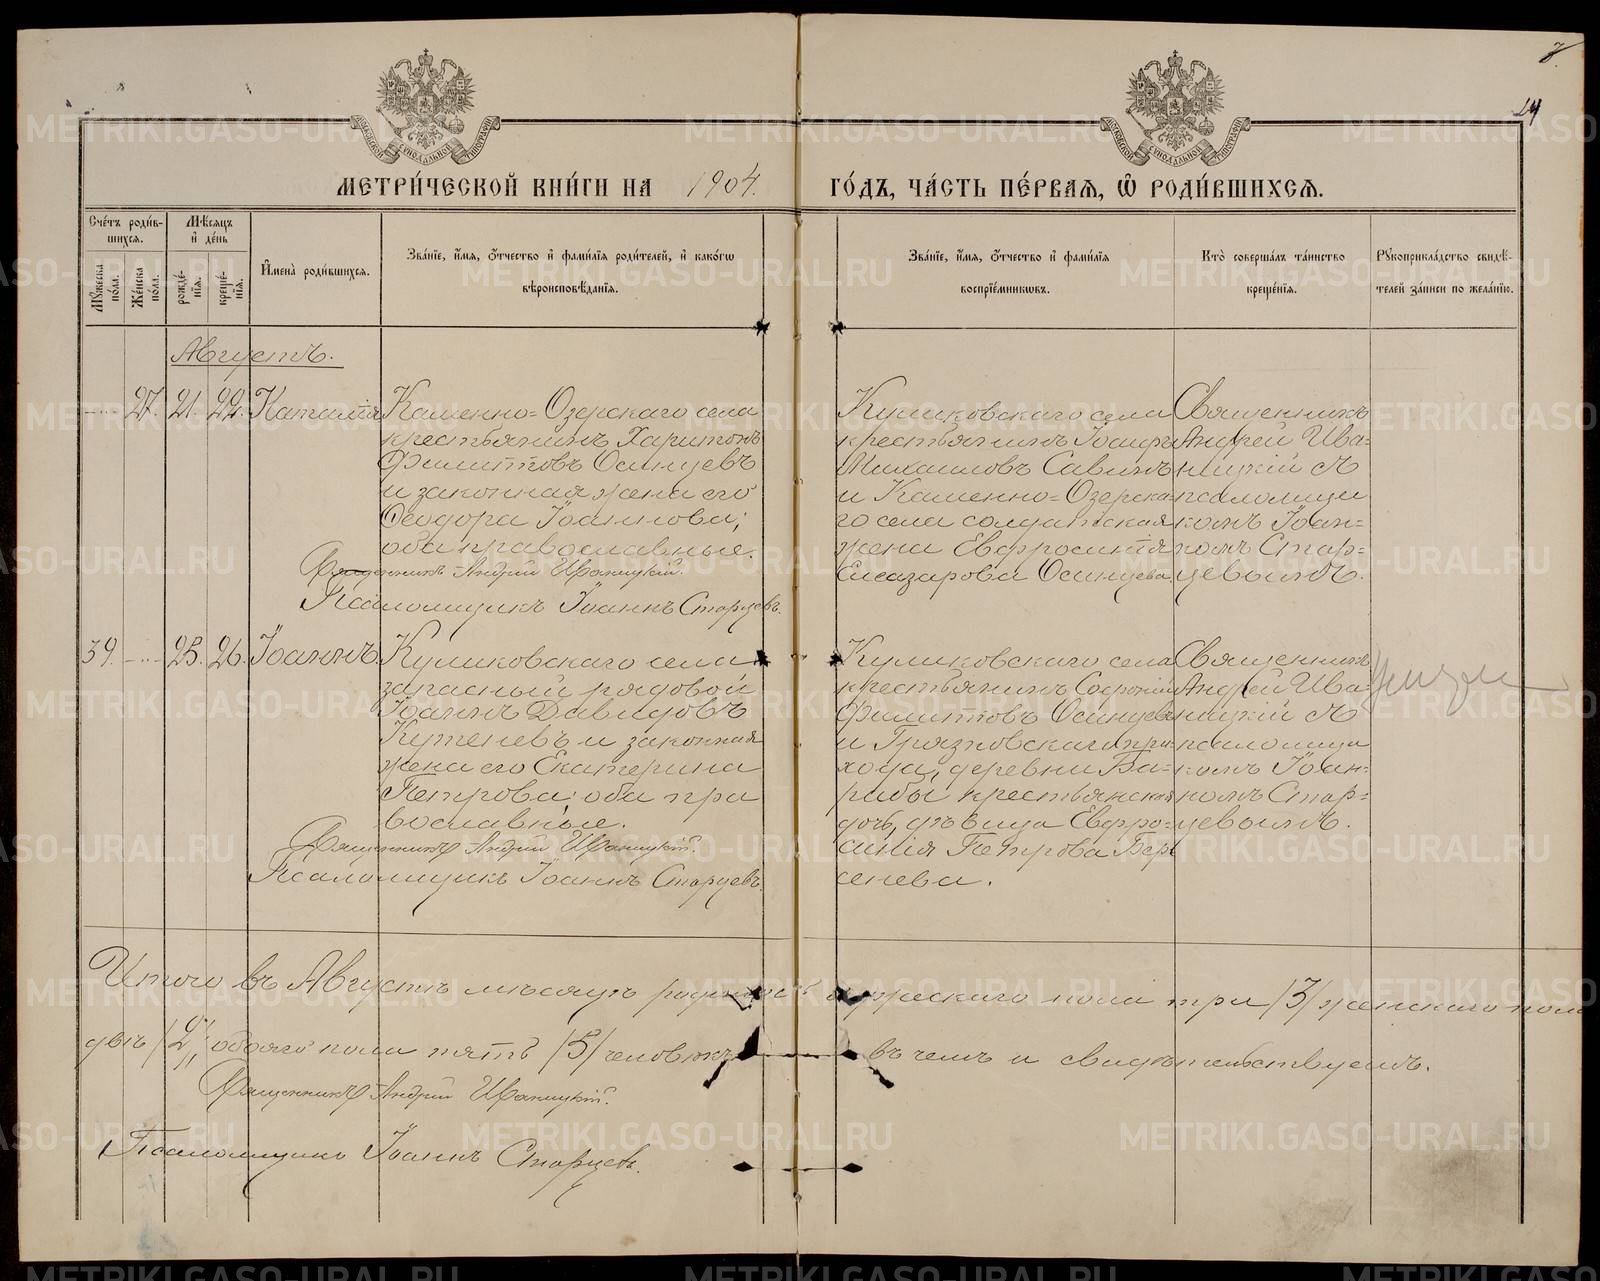 МОСКОВСКОЙ СѴНОДАЛЬНОЙ ТИПОГРАФІИ
МОСКОВСКОЙ СѴНОДАЛЬНОЙ ТИПОГРАФІИ
24
МЕТРИ́ЧЕСКОЙ КНИ́ГИ НА 1904. ГО́ДЪ, ЧА́СТЬ ПЕ́РВАѦ, Ѿ РОДИ́ВШИХСѦ.
Сче́тъ роди́в-шихсѧ.
Мѣ́сѧцъ и҆ де́нь
И҆мена̀ роди́вшихсѧ.
Зва́нїе, и҆́мѧ, ѻ҆́тчество и҆ фами́лїѧ роди́телей, и҆ како́гѡ вѣроисповѣ́данїѧ.
Зва́нїе, и҆́мѧ, ѻ҆́тчество и҆ фами́лїѧ воспрїе́мникѡвъ.
Кто̀ соверша́лъ та́инство креще́нїѧ.
Рꙋкоприкла́дство свидѣ́-телей за́писи по жела́нїю.
Мꙋ́жеска по́ла.
Же́нска по́ла.
рожде́-нїѧ.
креще́-нїѧ.
Августъ.
27. 21. 22. Наталія
Каменно-Озерскаго села
крестьянинъ Харитонъ
Филипповъ Осинцевъ
и законная жена его
Ѳеодора Іоаннова;
оба православные.
Священникъ Андрей Иваницкій.
Псаломщикъ Іоаннъ Старцевъ.
Куликовскаго села
крестьянинъ Іосифъ
Михаиловъ Савинъ
и Каменно-Озерска-
го села солдатская
жена Евфросинія
Елеазарова Осинцева.
Священникъ
Андрей Ива-
ницкій съ
псаломщи
комъ Іоан-
номъ Стар-
цевымъ.
39. 25. 26. Іоаннъ.
Куликовскаго села
запасный рядовой
Іоаннъ Давидовъ
Кутеневъ и законная
жена его Екатерина
Петрова; оба пра
вославные.
Священникъ Андрей Иваницкій.
Псаломщикъ Іоаннъ Старцевъ.
Куликовскаго села
крестьянинъ Софоній
Филипповъ Осинцевъ
и Грязновскаго при-
хода, деревни Ба-
рабы крестьянская
дочь, дѣвица Евфро-
синія Петрова Бер
сенева.
Священникъ
Андрей Ива-
ницкій съ
псаломщи
комъ Іоан-
номъ Стар-
цевымъ.
Итого въ Августѣ мѣсяцѣ родилось мужескаго пола три /3/ женскаго пола
двѣ /2/, обоего пола пять /5/ человѣкъ въ чемъ и свидѣтельствуемъ.
Священникъ Андрей Иваницкій.
Псаломщикъ Іоаннъ Старцевъ.
METRIKI.GASO-URAL.RU